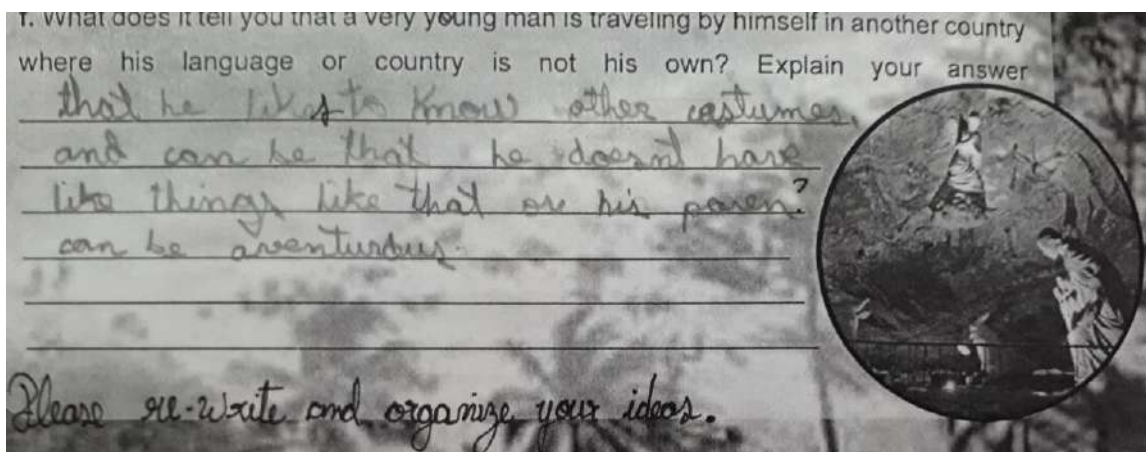 f. What does it tell you that a very young man is traveling by himself in another country
where his language or country is not his own? Explain your answer
that he likes to know other costumes,
and can be that he doesnt have
like things like that or his paren?
can be aventurdus.
Please re-write and organize your ideas.